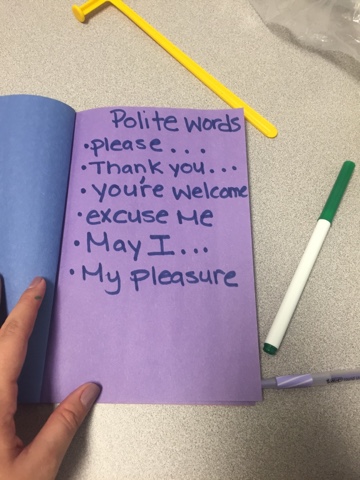 Polite words
•please...
•Thank you...
•you're welcome
•excuse Me
•May I...
•My pleasure